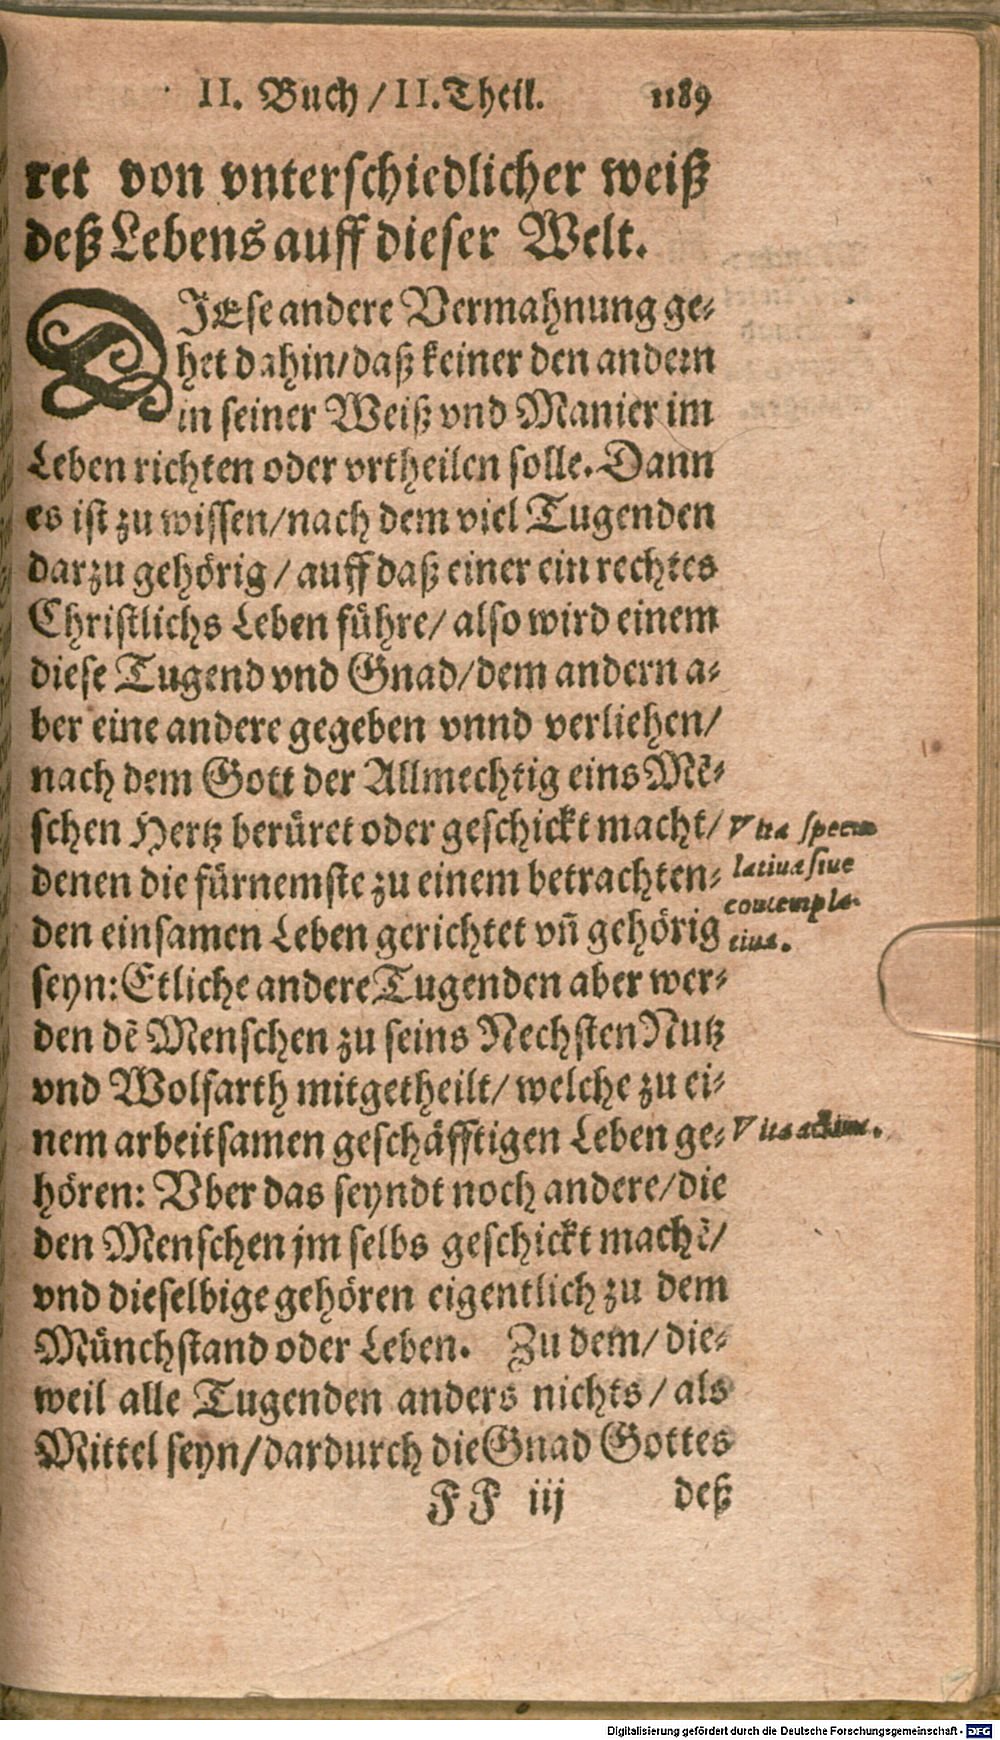 II. Buch / II. Theil. 1189
ret von vnterschiedlicher weiß
deß Lebens auff dieser Welt.
DIEse andere Vermahnung ge⸗
het dahin/ daß keiner den andern
in seiner Weiß vnd Manier im
Leben richten oder vrtheilen solle. Dann
es ist zu wissen/ nach dem viel Tugenden
darzu gehörig/ auff daß einer ein rechtes
Christlichs Leben führe/ also wird einem
diese Tugend vnd Gnad/ dem andern a⸗
ber eine andere gegeben vnnd verliehen/
nach dem Gott der Allmechtig eins Mẽ⸗
schen Hertz berüret oder geschickt macht/
denen die fürnemste zu einem betrachten⸗
den einsamen Leben gerichtet vñ gehörig
seyn: Etliche andere Tugenden aber wer⸗
den dẽ Menschen zu seins Nechsten Nutz
vnd Wolfarth mitgetheilt/ welche zu ei⸗
nem arbeitsamen geschäfftigen Leben ge⸗
hören: Vber das seyndt noch andere/ die
den Menschen jm selbs geschickt machẽ/
vnd dieselbige gehören eigentlich zu dem
Münchstand oder Leben. Zu dem/ die⸗
weil alle Tugenden anders nichts/ als
Mittel seyn/ dardurch die Gnad Gottes
FF iij deß
Vita specu
latiua siue
contempla-
tiua.
Vita actiua.
Digitalisierung gefördert durch die Deutsche Forschungsgemeinschaft - DFG